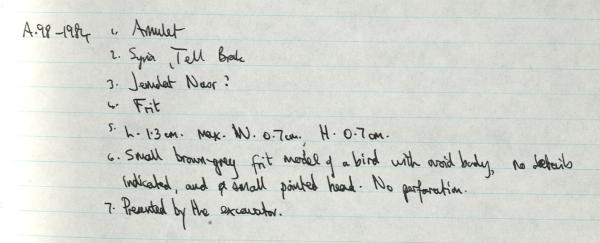 A.98-1984 1. Amulet
2. Syria, Tell Brak
3. Jemdet Nasr?
4. Frit
5. L. 1.3 cm. Max. W. 0.7 cm. H. 0.7 cm.
6. Small brown-grey frit model of a bird with ovoid body, no details
indicated, and a small pointed head. No perforation.
7. Presented by the excavator.